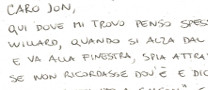 CARO JON,
QUI DOVE MI TROVO PENSO SPES
WILLARD, QUANDO SI ALZA DAL
E VA ALLA FINESTRA, SPIA ATTRA
SE NON RICORDASSE DOV'È E DIC